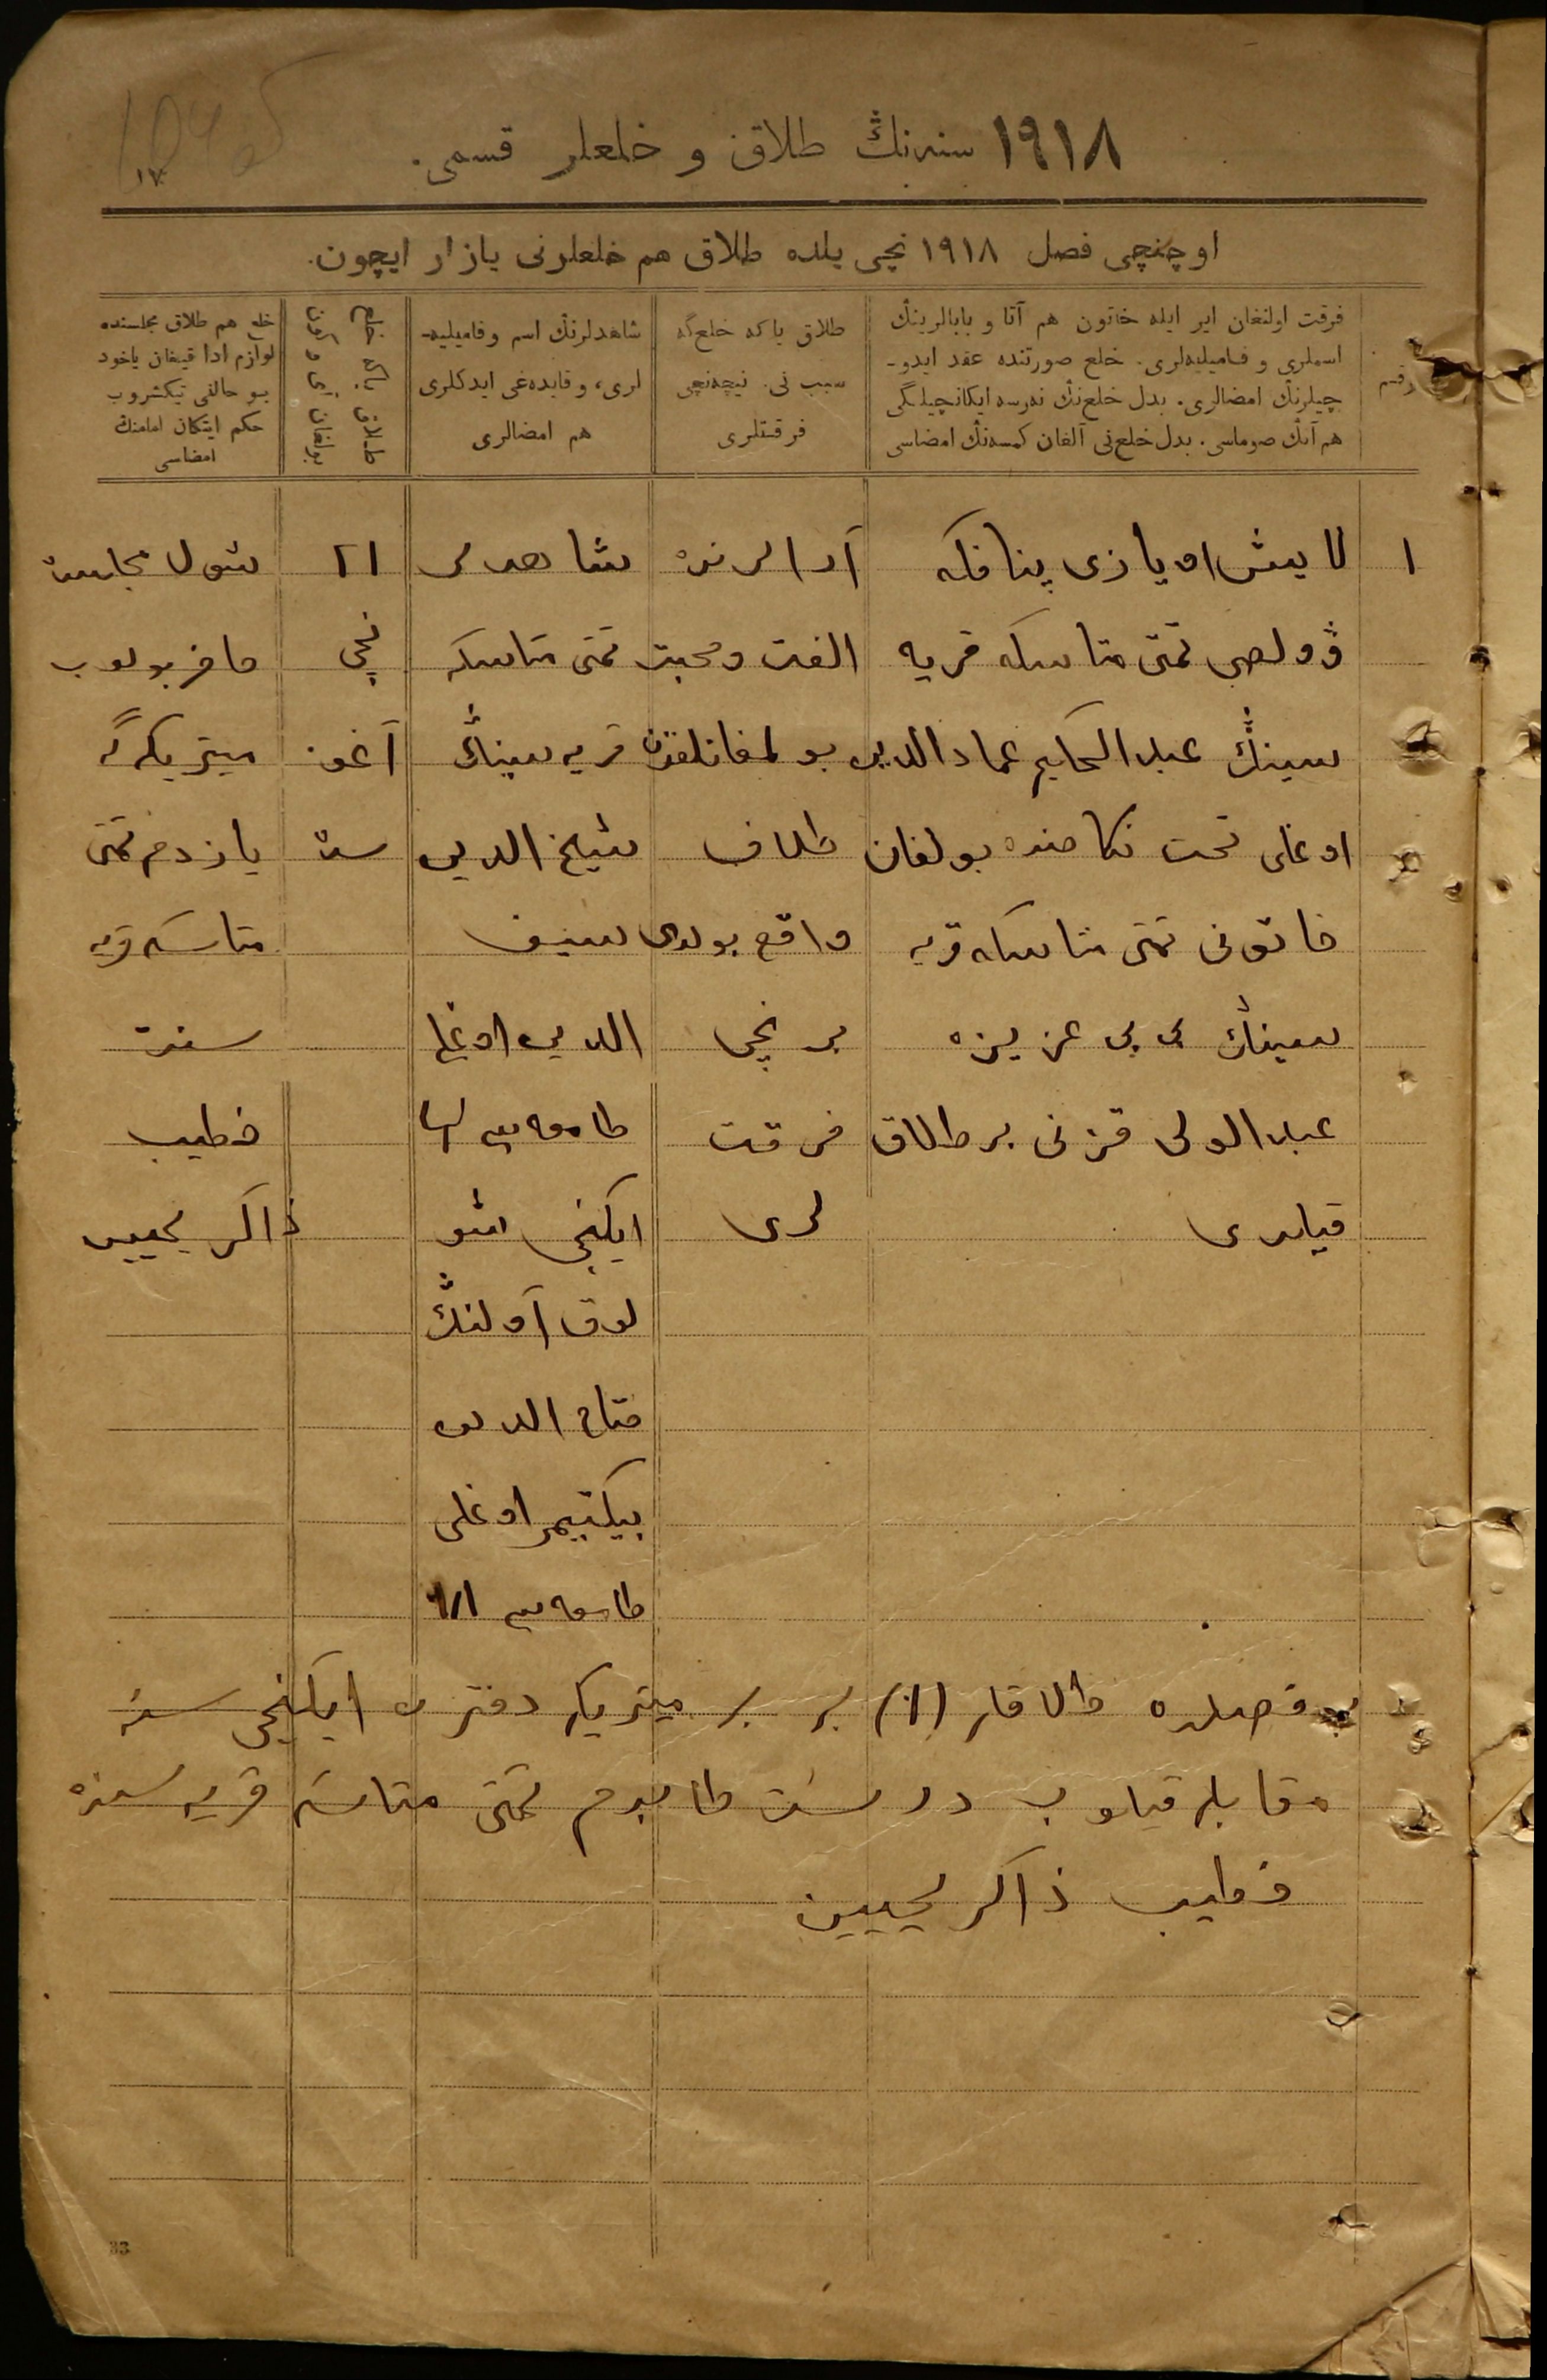 ١٩١٨ سنه‌نڭ طلاق و خلعلر قسمی.
١٧
اوچنچی فصل ١٩١٨ نچی یلده طلاق هم خلعلرنی یازار ایچون.
رقم
فرقت اولنغان ایر ایله خاتون هم آتا و بابالرینڭ
اسملری و فامیلیه‌لری. خلع صورتنده عقد ایدو-
چیلرنڭ امضالری. بدل خلع‌نڭ نه‌رسه ایکانچیلگی
هم آنڭ صوماسی. بدل خلع‌نی آلغان کمسه‌نڭ امضاسی
طلاق یاکه خلع‌گه
سبب نی. نیچه‌نچی
فرقتلری
شاهدلرنڭ اسم و فامیلیه-
لری، و قایده‌غی ایدکلری
هم امضالری
طلاق یاکه خلع
بولغان آی و کون
خلع هم طلاق مجلسنده
لوازم ادا قیغان یاخود
بو حالنی تیکشروب
حکم ایتکان امامنڭ
امضاسی
١
لایش اویازی پنافکه
ڤولصی تمتی متاسکه قریه
سینڭ عبد الحکیم عماد الدین
اوغلی تحت نکاحنده بولغان
خاتونی تمتی متاسکه قریه
سینڭ بی بی عزیزه
عبد الولی قزنی بر طلاق
قیلدی
آرالرنده
الفت و محبت
بولمغانلقدن
طلاق
واقع بولدی
برنچی
فرقت
لری
شاهدلر
تمتی متاسکه
قریه سینڭ
شیخ الدین
سیف
الدین اوغلی
ایکنچی اشبو
اوق آولنڭ
فتاح الدین
بیکتیمر اوغلی
٢١
نچی
آغو
ست
شول مجلسده
حاضر بولوب
میتریکه‌گه
یازدم تمتی
متاسکه قریه
سنده
خطیب
ذاکر یحیین
بو فصلده طلاقلر (١) بر بر میتریکه دفتری ایکنچی سینه
مقابله قیلوب درست طابدم تمتی متاسکه قریه سنده
خطیب ذاکر یحیین
33